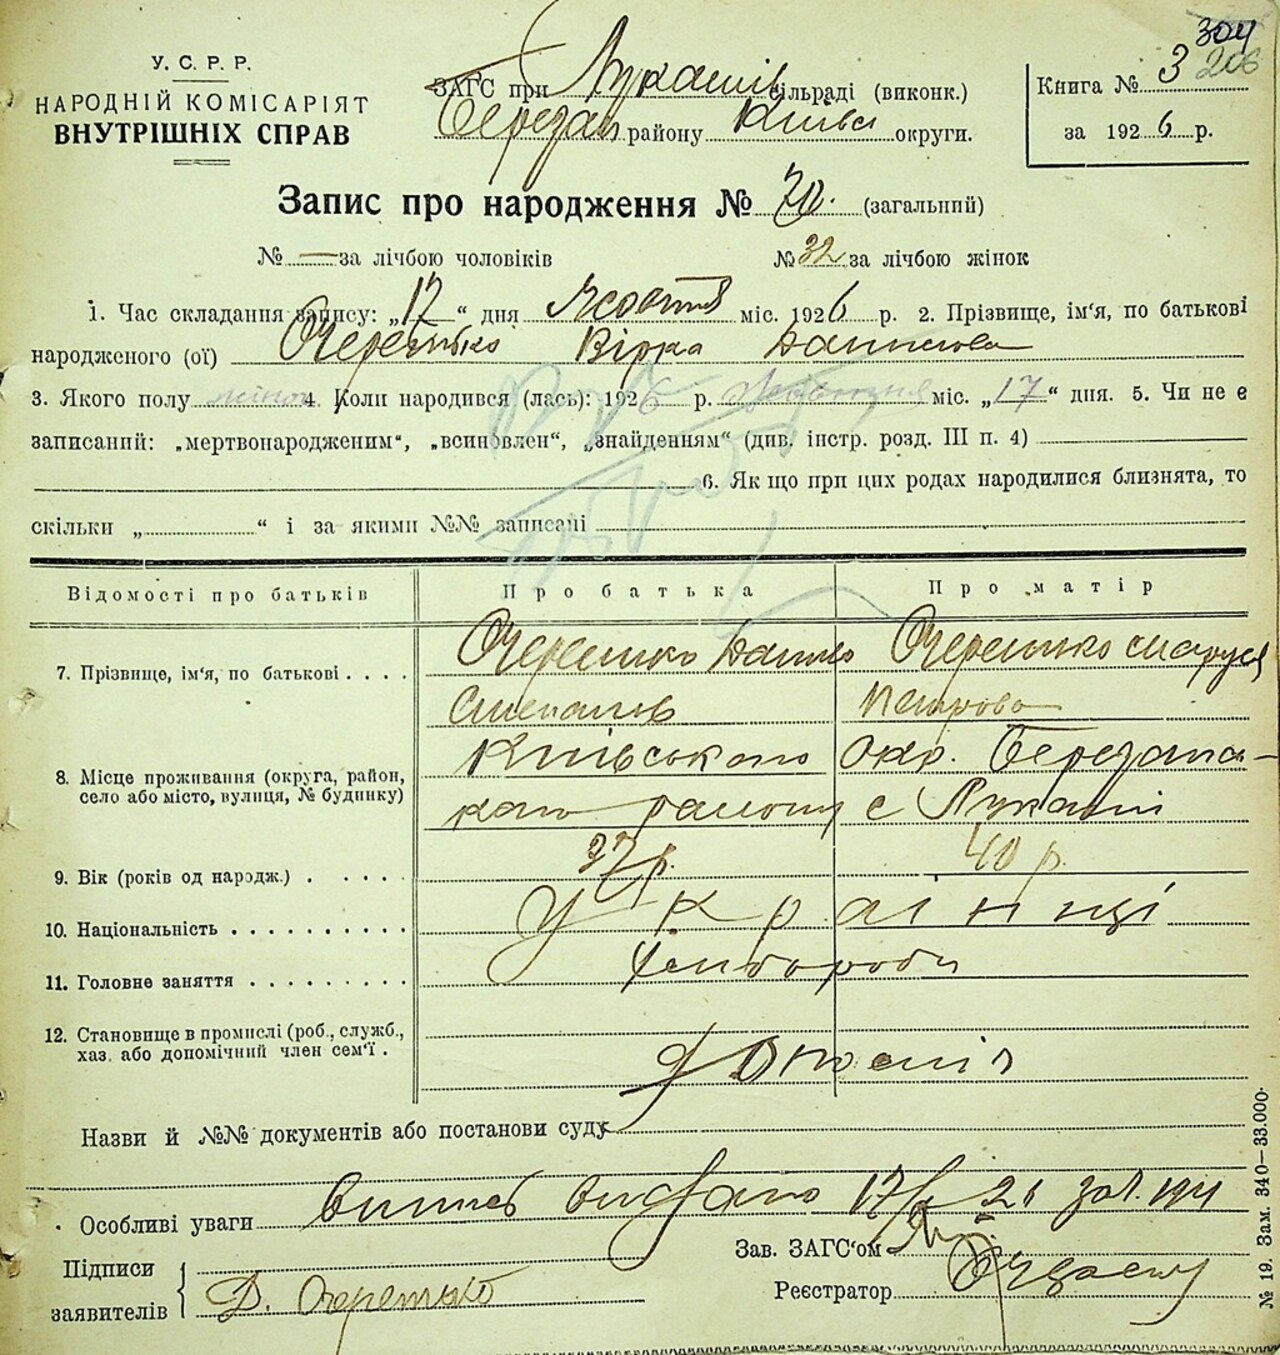 304
206
У. С. Р. Р.
НАРОДНІЙ КОМІСАРІЯТ
ВНУТРІШНІХ СПРАВ
ЗАГС при Лукашів сільраді (виконк.)
Березан району Київс округи.
Книга № 3
за 1926 р.
Запис про народження № 70. (загальний)
№ — за лічбою чоловіків № 32 за лічбою жінок
1. Час складання запису: „17“ дня Жовтня міс. 1926 р. 2. Прізвище, ім'я, по батькові
народженого (ої) Очеретько Вірка Данилова
3. Якого полу жіноч 4. Коли народився (лась): 1926 р. Жовтня міс. „17“ дня. 5. Чи не є
записаний: „мертвонародженим“, „всиновлен“, „знайденням“ (див. інстр. розд. III п. 4)
6. Якщо при цих родах народилися близнята, то
скільки „ “ і за якими №№ записані
Відомості про батьків Про батька Про матір
7. Прізвище, ім'я, по батькові . . . . Очеретько Данило Очеретько Маруся
Степанов Петрова
8. Місце проживання (округа, район, Київського Окр. Березансь-
село або місто, вулиця, № будинку) кого району с Лукаші
9. Вік (років од народж.) . . . . . 37 р. 40 р.
10. Національність . . . . . . . . . . Українці
11. Головне заняття . . . . . . . . . Хлібороби
12. Становище в промислі (роб., служб.,
хаз. або допомічний член сем'ї .
Назви й №№ документів або постанови суду
Особливі уваги Витяг видано
Зав. ЗАГС'ом
Підписи
заявителів Д. Очеретько
Реєстратор
№ 19. Зам. 340—33.000.